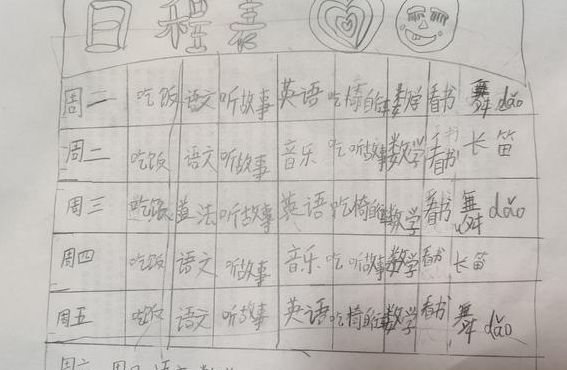 日程表
周二 吃饭 语文 听故事 英语 吃 数学 看书 舞dǎo
周二 吃饭 语文 听故事 音乐 吃 听故事 数学 看书 长笛
周三 吃饭 道法 听故事 英语 吃 数学 看书 舞dǎo
周四 吃饭 语文 听故事 音乐 吃 听故事 数学 看书 长笛
周五 吃饭 语文 听故事 英语 吃 数学 看书 舞dǎo